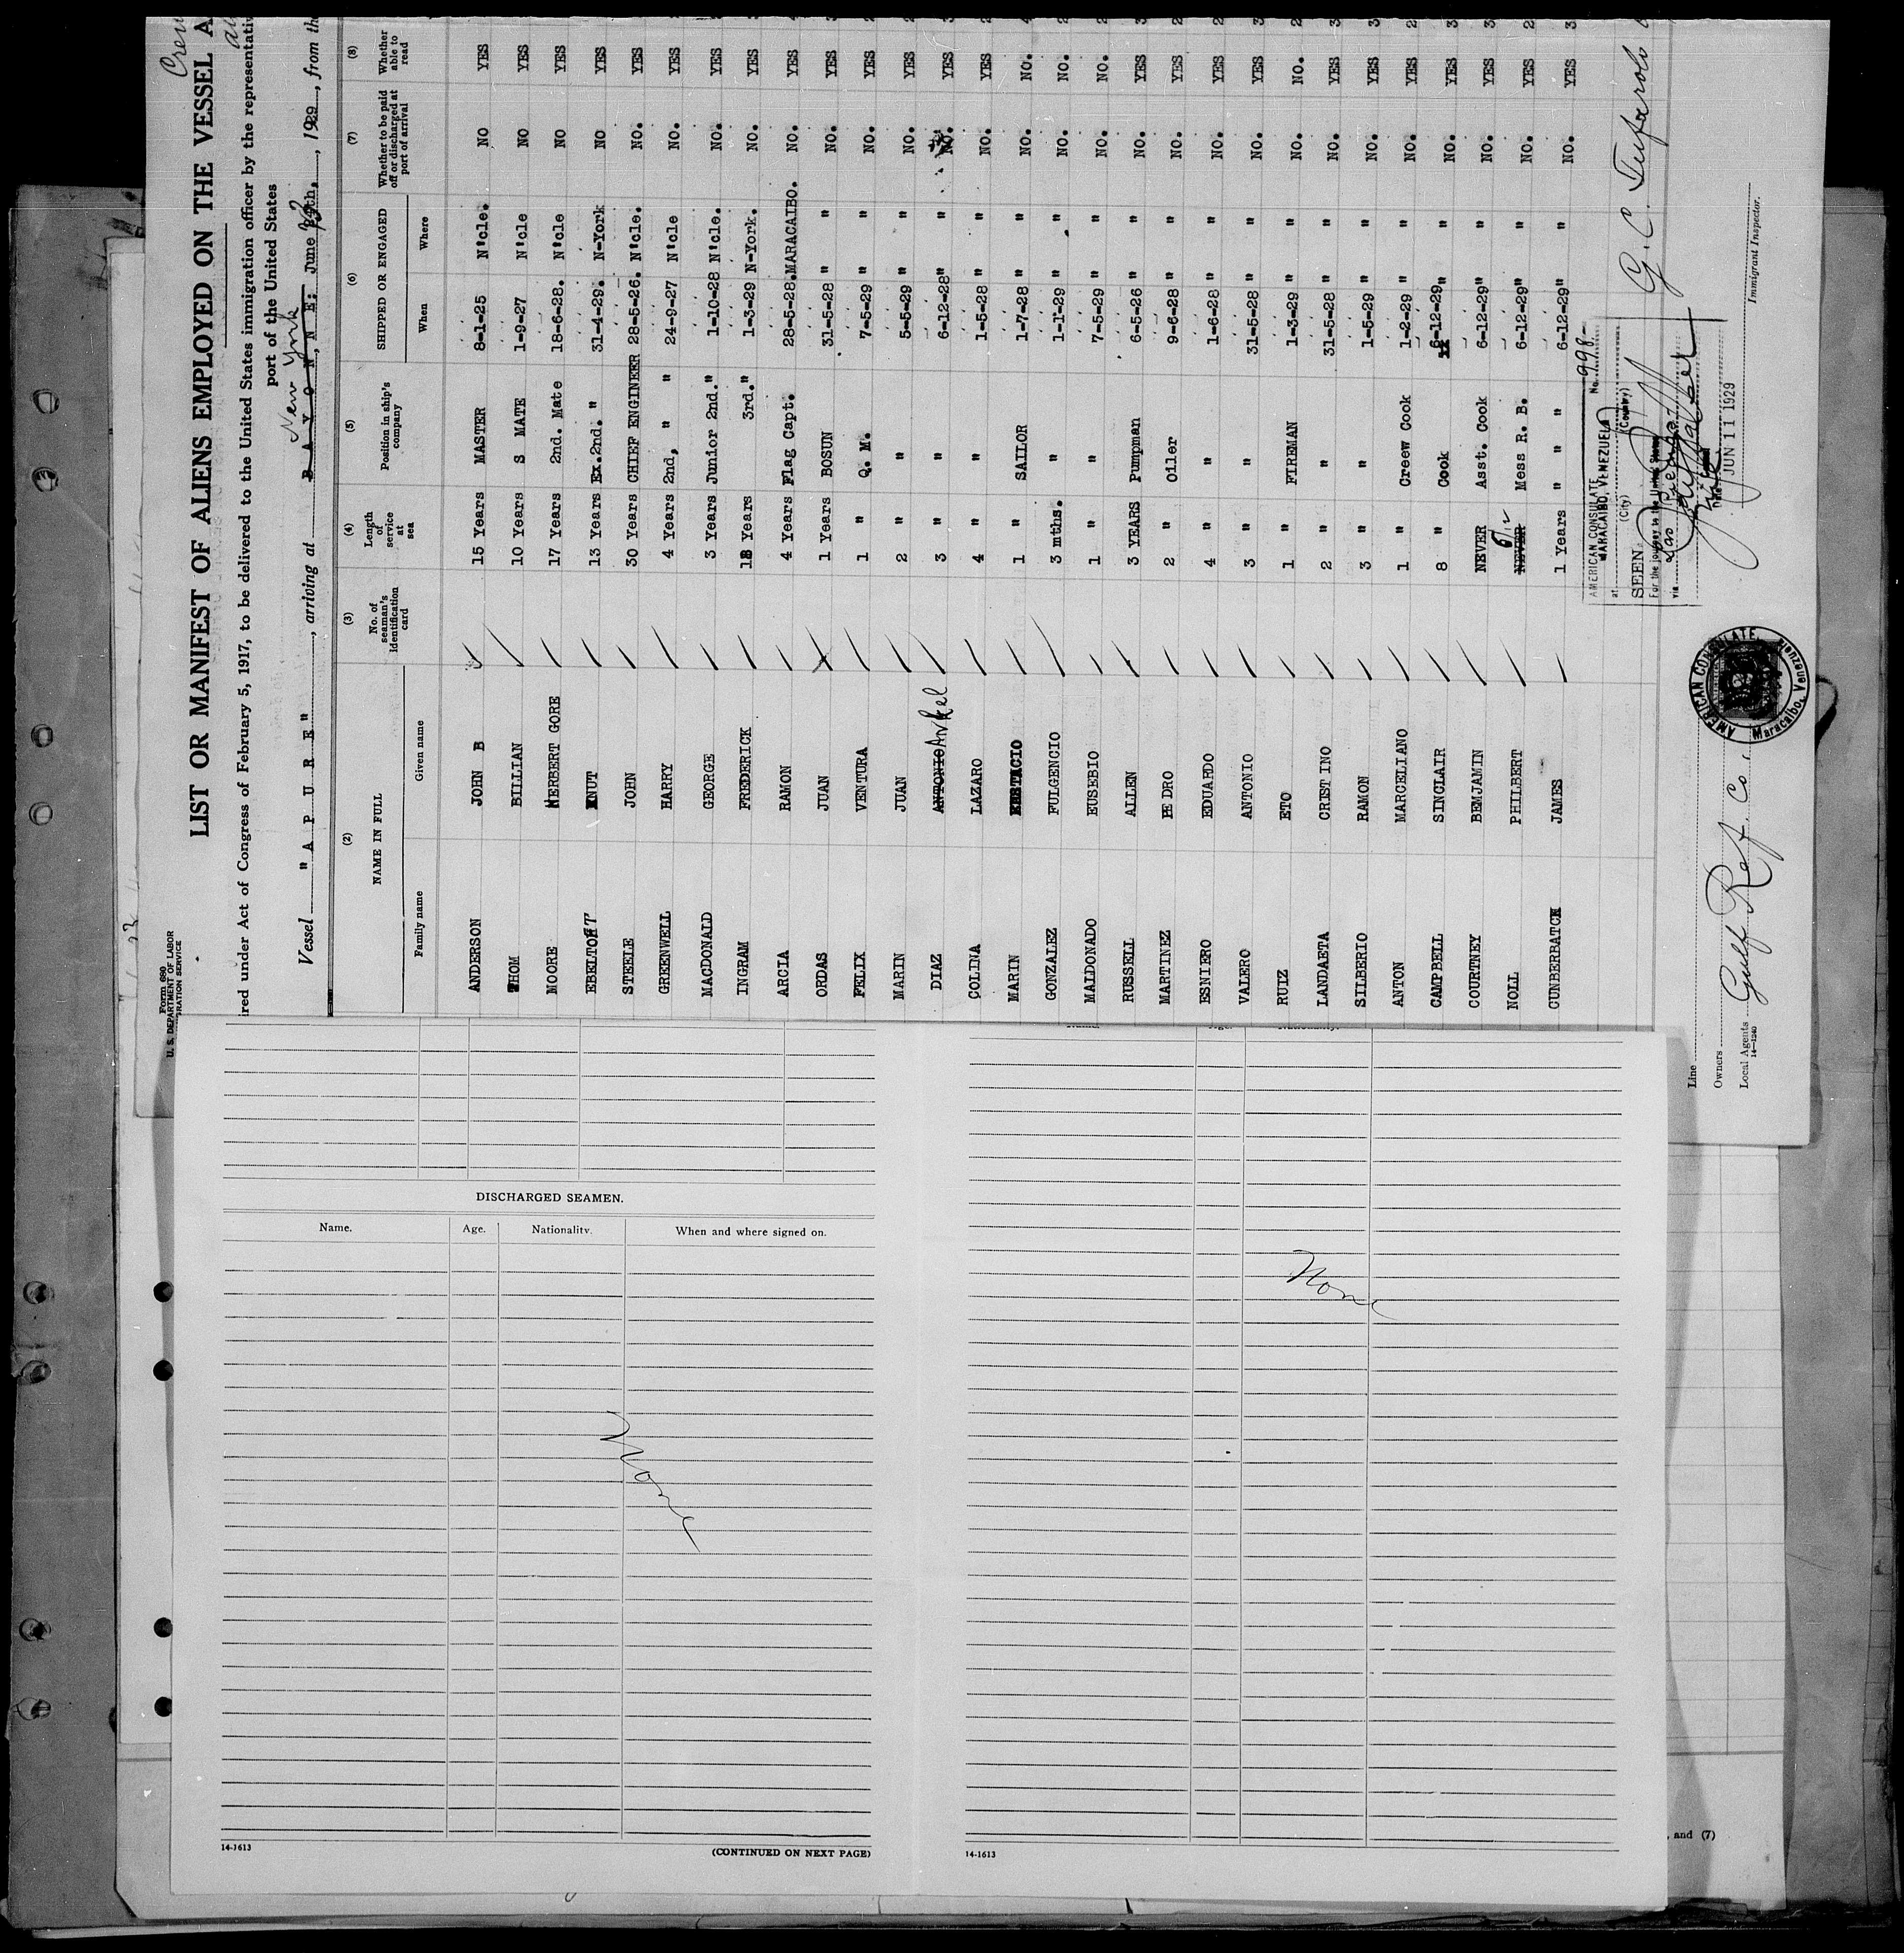 Form 680
U. S. DEPARTMENT OF LABOR
RATION SERVICE
Crew
LIST OR MANIFEST OF ALIENS EMPLOYED ON THE VESSEL A
red under Act of Congress of February 5, 1917, to be delivered to the United States immigration officer by the representativ
port of the United States
New York
Vessel "A P U R E", arriving at B A Y O N N E; June 24th, 1929, from th
(2) (3) (4) (5) (6) (7) (8)
NAME IN FULL No. of seaman's identification card Length of service at sea Position in ship's company SHIPPED OR ENGAGED Whether to be paid off or discharged at port of arrival Whether able to read
Family name Given name When Where
ANDERSON JOHN B 15 Years MASTER 8-1-25 N'cle. NO YES
THOM BILLIAN 10 Years S MATE 1-9-27 N'cle NO YES
MOORE HERBERT GORE 17 Years 2nd. Mate 18-6-28. N'cle NO YES
EBELTOFT KNUT 13 Years Ex.2nd. " 31-4-29. N-York NO YES
STEELE JOHN 30 Years CHIEF ENGINEER 28-5-26. N'cle. NO. YES
GREENWELL HARRY 4 Years 2nd, " " 24-9-27 N'cle NO. YES
MACDONALD GEORGE 3 Years Junior 2nd." 1-10-28 N'cle. NO. YES
INGRAM FREDERICK 18 Years 3rd." 1-3-29 N-York. NO. YES
ARCIA RAMON 4 Years Flag Capt. 28-5-28.MARACAIBO. NO. YES
ORDAS JUAN 1 Years BOSUN 31-5-28 " " NO. YES
FELIX VENTURA 1 " Q. M. 7-5-29 " " NO. YES
MARIN JUAN 2 " " 5-5-29 " " NO. YES
DIAZ ANTONIO Ankel 3 " " 6-12-28" " NO. YES
COLINA LAZARO 4 " " 1-5-28 " " NO. YES
MARIN 1 " SAILOR 1-7-28 " " NO. NO.
GONZALEZ FULGENCIO 3 mths. " 1-1-29 " " NO. NO.
MALDONADO EUSEBIO 1 " " 7-5-29 " " NO. NO.
RUSSELL ALLEN 3 YEARS Pumpman 6-5-26 " " NO. YES
MARTINEZ PE DRO 2 " Oiler 9-6-28 " " NO. YES
ESNIERO EDUARDO 4 " " 1-6-28 " " NO. YES
VALERO ANTONIO 3 " " 31-5-28 " " NO. YES
RUIZ ETO 1 " FIREMAN 1-3-29 " " NO. NO.
LANDAETA CRIST INO 2 " " 31-5-28 " " NO. YES
SILBERIO RAMON 3 " " 1-5-29 " " NO. YES
ANTON MARCELIANO 1 " Creew Cook 1-2-29 " " NO. YES
CAMPBELL SINCLAIR 8 " Cook 6-12-29" " NO. YES
COURTNEY BEMJAMIN NEVER Asst. Cook 6-12-29" " NO. YES
NOLL PHILBERT NEVER Mess R. B. 6-12-29" " NO. YES
CUNBERBATCH JAMES 1 Years " " " 6-12-29" " NO. YES
AMERICAN CONSULATE No. 998
at MARACAIBO, VENEZUELA
(City) (Country)
SEEN
For the journey to the United States
via Las Piedras
Date JUN 11 1929
G. C. Tufarolo
Immigrant Inspector.
AMERICAN CONSULATE
Maracaibo, Venezuela
Line
Owners
Local Agents Gulf Ref. Co.,
14-1240
DISCHARGED SEAMEN.
Name. Age. Nationality. When and where signed on.
None
14-1613
(CONTINUED ON NEXT PAGE)
Name. Age. Nationality.
None
14-1613
, and (7)